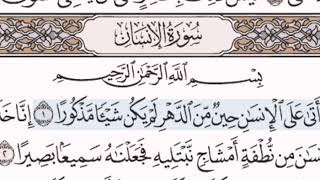 سُورَةُ الإِنسَانِ
بِسْمِ اللَّهِ الرَّحْمَٰنِ الرَّحِيمِ
أَتَىٰ عَلَى الْإِنسَانِ حِينٌ مِّنَ الدَّهْرِ لَمْ يَكُن شَيْئًا مَّذْكُورًا ١ إِنَّا خَلَ
نسَانَ مِن نُّطْفَةٍ أَمْشَاجٍ نَّبْتَلِيهِ فَجَعَلْنَاهُ سَمِيعًا بَصِيرًا ٢